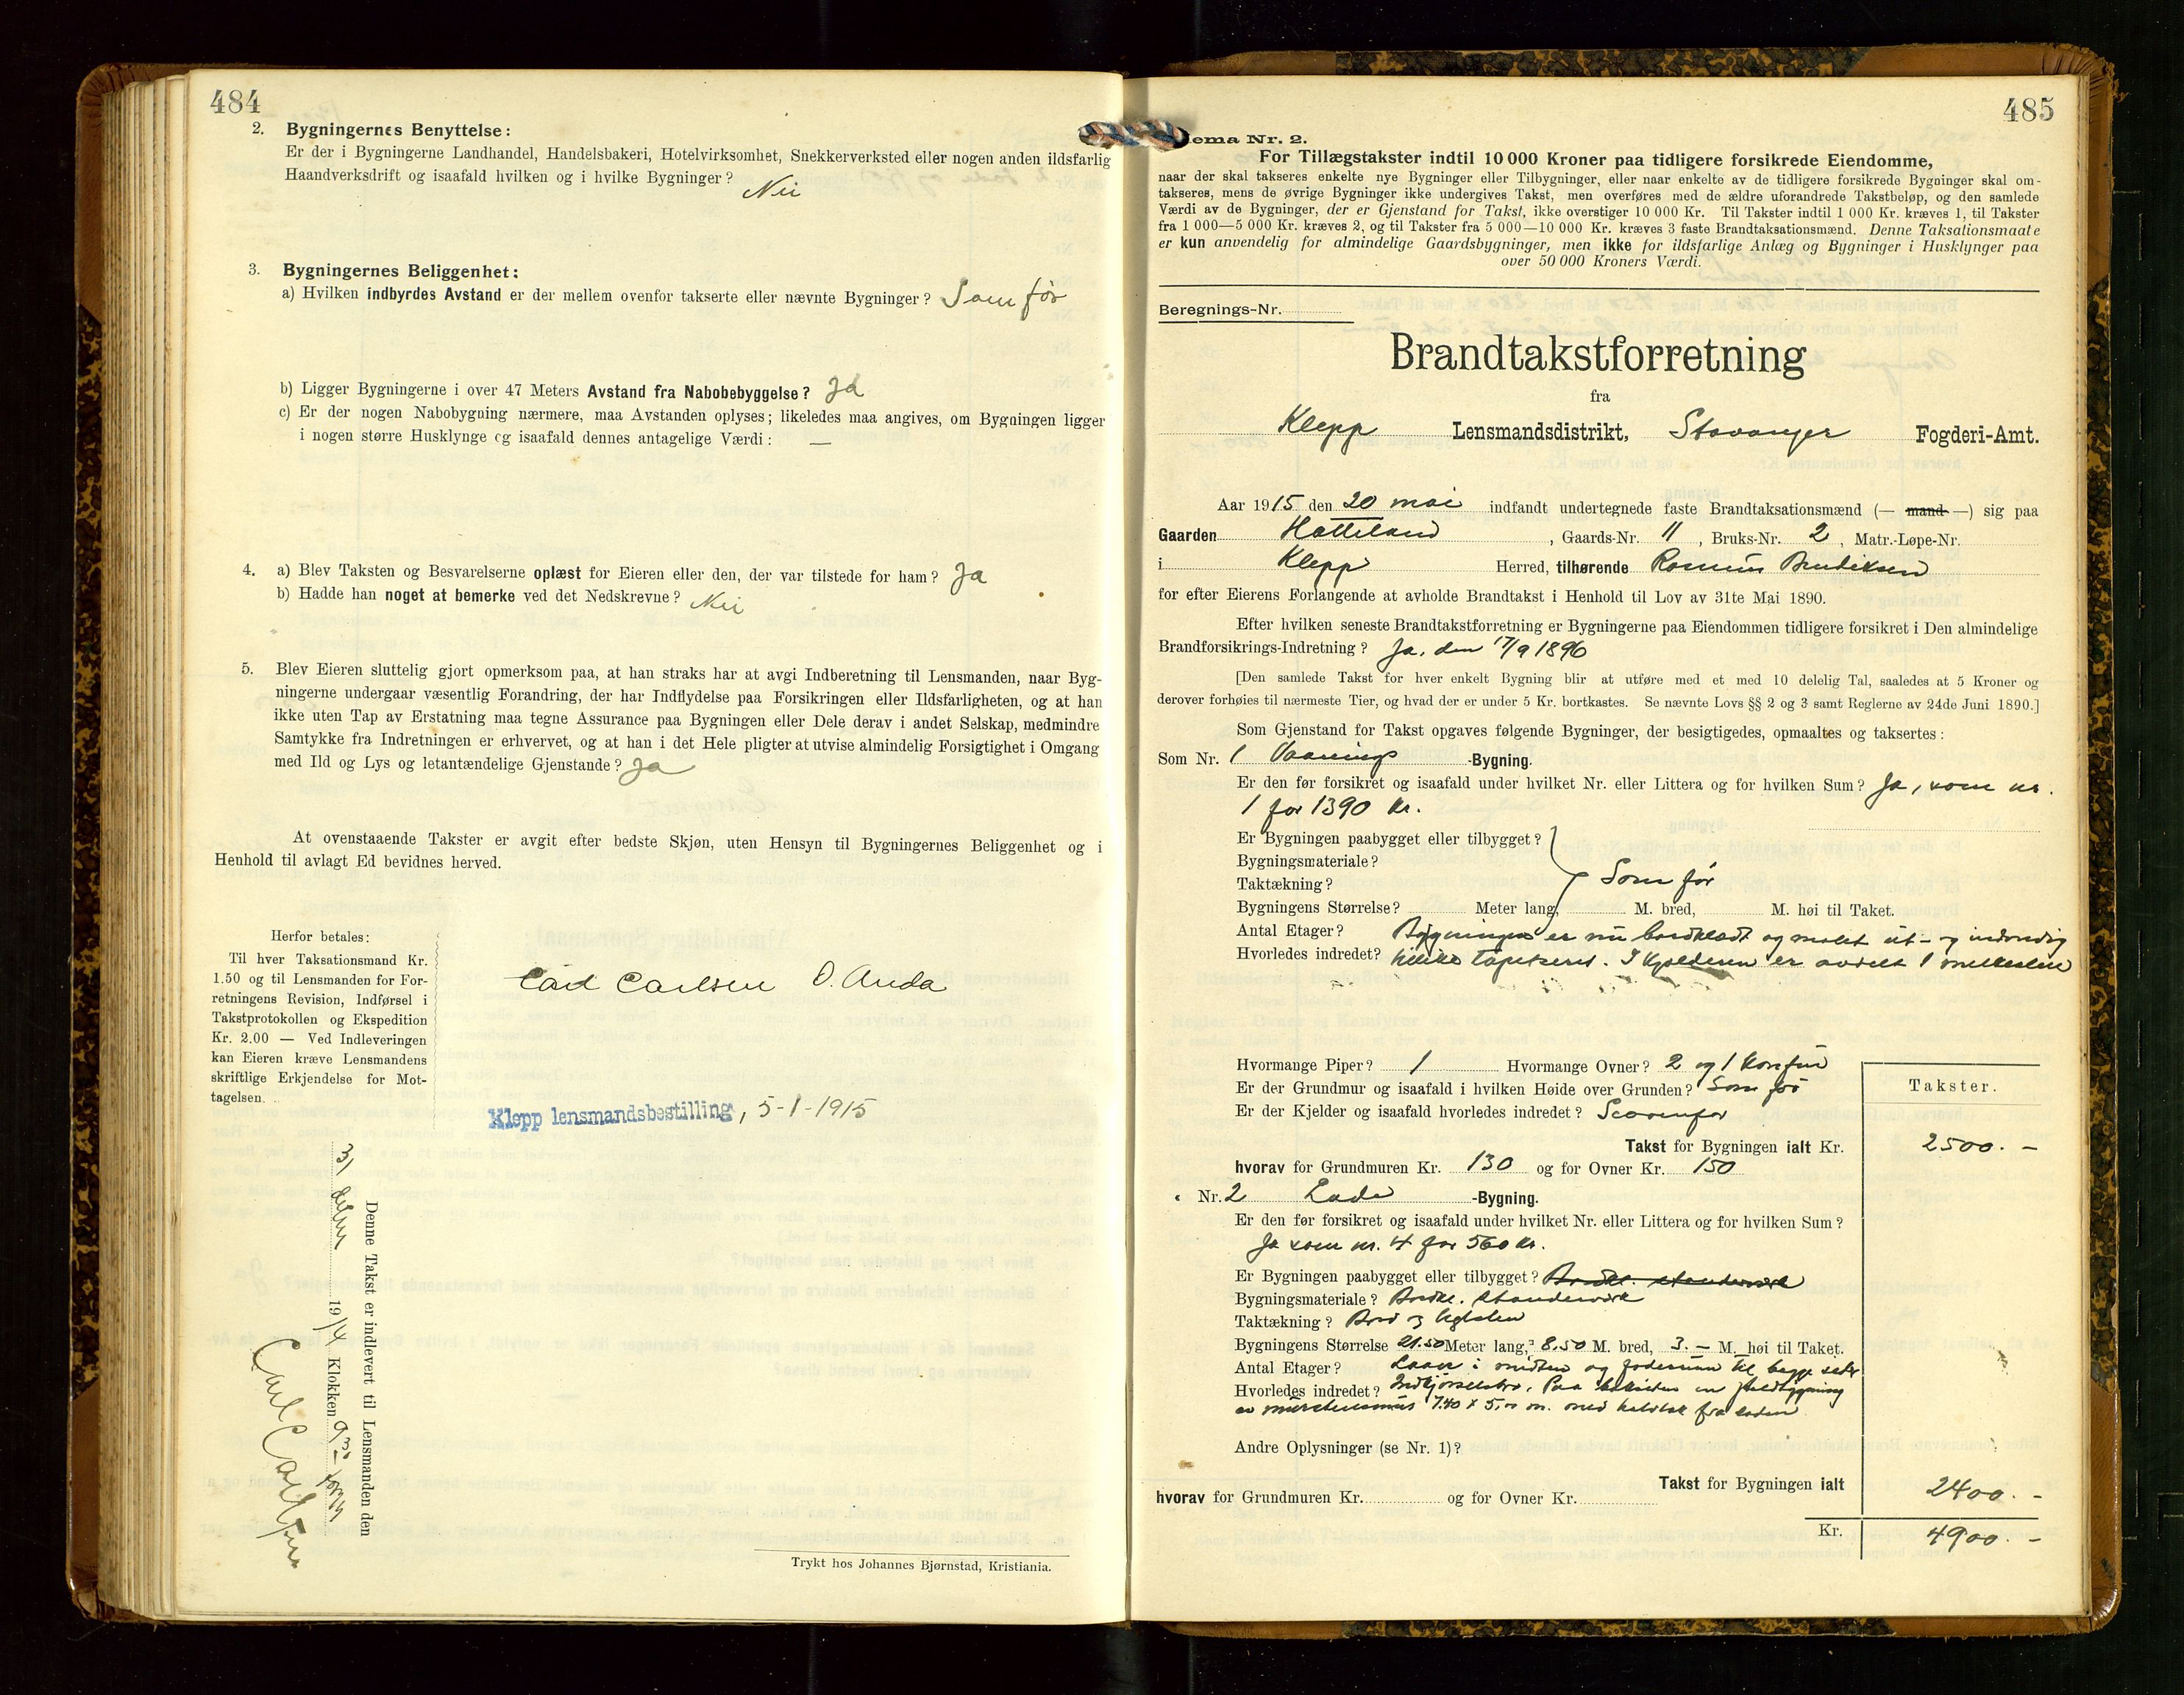 484
2. Bygningernes Benyttelse:
Er der i Bygningerne Landhandel, Handelsbakeri, Hotelvirksomhet, Snekkerverksted eller nogen anden ildsfarlig
Haandverksdrift og isaafald hvilken og i hvilke Bygninger? Nei
3. Bygningernes Beliggenhet:
a) Hvilken indbyrdes Avstand er der mellem ovenfor takserte eller nævnte Bygninger? Som før
b) Ligger Bygningerne i over 47 Meters Avstand fra Nabobebyggelse? Ja
c) Er der nogen Nabobygning nærmere, maa Avstanden oplyses; likeledes maa angives, om Bygningen ligger
i nogen større Husklynge og isaafald dennes antagelige Værdi: —
4. a) Blev Taksten og Besvarelserne oplæst for Eieren eller den, der var tilstede for ham? Ja
b) Hadde han noget at bemerke ved det Nedskrevne? Nei
5. Blev Eieren sluttelig gjort opmerksom paa, at han straks har at avgi Indberetning til Lensmanden, naar Byg-
ningerne undergaar væsentlig Forandring, der har Indflydelse paa Forsikringen eller Ildsfarligheten, og at han
ikke uten Tap av Erstatning maa tegne Assurance paa Bygningen eller Dele derav i andet Selskap, medmindre
Samtykke fra Indretningen er erhvervet, og at han i det Hele pligter at utvise almindelig Forsigtighet i Omgang
med Ild og Lys og letantændelige Gjenstande? Ja
At ovenstaaende Takster er avgit efter bedste Skjøn, uten Hensyn til Bygningernes Beliggenhet og i
Henhold til avlagt Ed bevidnes herved.
Herfor betales:
Til hver Taksationsmand Kr.
1.50 og til Lensmanden for For-
retningens Revision, Indførsel i
Takstprotokollen og Ekspedition
Kr. 2.00 — Ved Indleveringen
kan Eieren kræve Lensmandens
skriftlige Erkjendelse for Mot-
tagelsen.
Carl Carlsen O. Anda
Klepp lensmandsbestilling, 5-1-1915
Denne Takst er indlevert til Lensmanden den
31 1914 Klokken 9
Carl Carlsen
Trykt hos Johannes Bjørnstad, Kristiania.
485
ema Nr. 2.
For Tillægstakster indtil 10 000 Kroner paa tidligere forsikrede Eiendomme,
naar der skal takseres enkelte nye Bygninger eller Tilbygninger, eller naar enkelte av de tidligere forsikrede Bygninger skal om-
takseres, mens de øvrige Bygninger ikke undergives Takst, men overføres med de ældre uforandrede Takstbeløp, og den samlede
Værdi av de Bygninger, der er Gjenstand for Takst, ikke overstiger 10 000 Kr. Til Takster indtil 1 000 Kr. kræves 1, til Takster
fra 1 000—5 000 Kr. kræves 2, og til Takster fra 5 000—10 000 Kr. kræves 3 faste Brandtaksationsmænd. Denne Taksationsmaate
er kun anvendelig for almindelige Gaardsbygninger, men ikke for ildsfarlige Anlæg og Bygninger i Husklynger paa
over 50 000 Kroners Værdi.
Beregnings-Nr.
Brandtakstforretning
fra
Klepp Lensmandsdistrikt, Stavanger Fogderi-Amt.
Aar 1915 den 20 mai indfandt undertegnede faste Brandtaksationsmænd (— mand —) sig paa
Gaarden Hatteland, Gaards-Nr. 11, Bruks-Nr. 2, Matr.-Løpe-Nr.
i Klepp Herred, tilhørende Rasmus Bendiksen
for efter Eierens Forlangende at avholde Brandtakst i Henhold til Lov av 31te Mai 1890.
Efter hvilken seneste Brandtakstforretning er Bygningerne paa Eiendommen tidligere forsikret i Den almindelige
Brandforsikrings-Indretning? Ja, den 17/9 1896
[Den samlede Takst for hver enkelt Bygning blir at utføre med et med 10 delelig Tal, saaledes at 5 Kroner og
derover forhøies til nærmeste Tier, og hvad der er under 5 Kr. bortkastes. Se nævnte Lovs §§ 2 og 3 samt Reglerne av 24de Juni 1890.]
Som Gjenstand for Takst opgaves følgende Bygninger, der besigtigedes, opmaaltes og taksertes:
Som Nr. 1 Vaanings-Bygning.
Er den før forsikret og isaafald under hvilket Nr. eller Littera og for hvilken Sum? Ja, som nr.
1 for 1390 kr.
Er Bygningen paabygget eller tilbygget?
Bygningsmateriale?
Taktækning? Som før
Bygningens Størrelse? Meter lang, M. bred, M. høi til Taket.
Antal Etager? Bygningen er nu bordklædt og malet ut- og indvendig
Hvorledes indredet? tillike tapetseret. I Kjælderen er avdelt 1
Hvormange Piper? 1 Hvormange Ovner? 2 og 1 Komfur
Er der Grundmur og isaafald i hvilken Høide over Grunden? Som før
Er der Kjelder og isaafald hvorledes indredet? Se ovenfor
Takster.
Takst for Bygningen ialt Kr. 2500.-
hvorav for Grundmuren Kr. 130 og for Ovner Kr. 150
" Nr. 2 Lade-Bygning.
Er den før forsikret og isaafald under hvilket Nr. eller Littera og for hvilken Sum?
Ja som nr. 4 for 560 kr.
Er Bygningen paabygget eller tilbygget? Bordkl. standerverk
Bygningsmateriale? Bordkl. standerverk
Taktækning? Bord og tglsten
Bygningens Størrelse 21.50 Meter lang, 8.50 M. bred, 3.- M. høi til Taket.
Antal Etager? Laave i midten og foderrum til begge sider
Hvorledes indredet? Indkjørselsbro. Paa baksiden en
av murstensmur 7.40 x 5,00 m. med fra laden
Andre Oplysninger (se Nr. 1)?
Takst for Bygningen ialt 2400.-
hvorav for Grundmuren Kr. og for Ovner Kr.
Kr. 4900.-